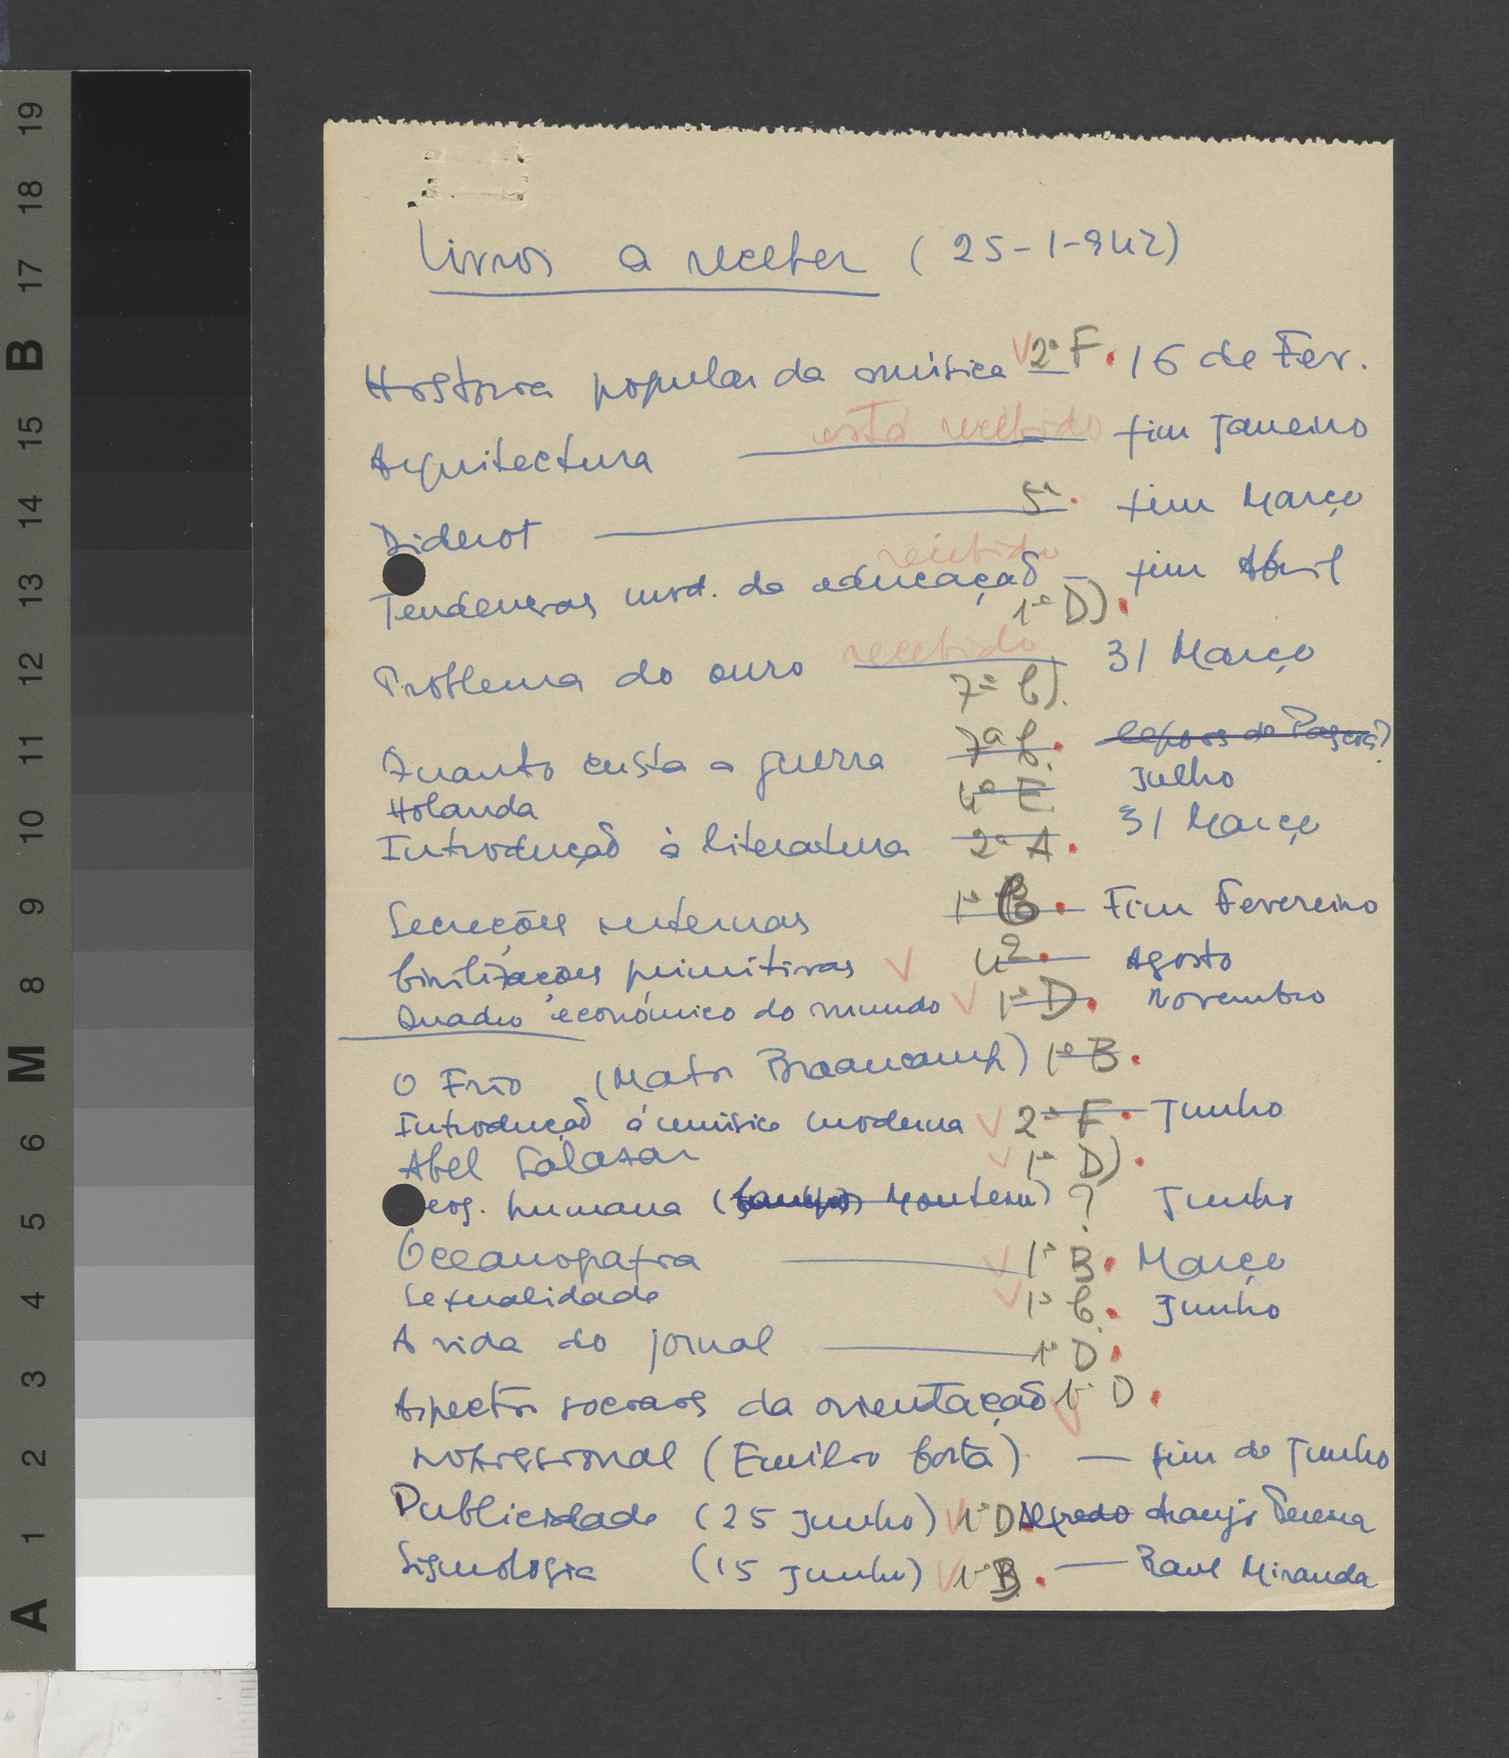 Livros a receber (25-1-942)
História popular da música 2ª F. 16 de Fev.
está recebido
Arquitectura fim Janeiro
Diderot 5ª. fim Março
recebido
Tendencias mod. da educação – fim Abril
1ª D).
recebido
Problema do ouro 31 Março
7ª C).
Quanto custa a guerra 7ª C.
Julho
Holanda 4ª E
Introdução à literatura 2ª A. 31 Março
Secreções internas 1ª B. Fim Fevereiro
Civilizações primitivas 4ª. Agosto
Quadro económico do mundo 1ª D. Novembro
O Frio (Matos Braancamp) 1ª B.
Introdução á música moderna 2ª F. Junho
Abel Salazar 1ª D).
eog. humana ( Monteiro) ? Junho
Oceanografia 1ª B. Março
Sexualidade 1ª C. Junho
A vida do jornal 1ª D.
Aspectos sociais da orientação 1ª D.
profissional (Emílio Costa) — fim de Junho
Publicidade (25 Junho) 1ª D. Alfredo Araujo Pereira
Sismologia (15 Junho) 1ª B. — Raul Miranda
A 1 2 3 4 5 6 M 8 9 10 11 12 13 14 15 B 17 18 19